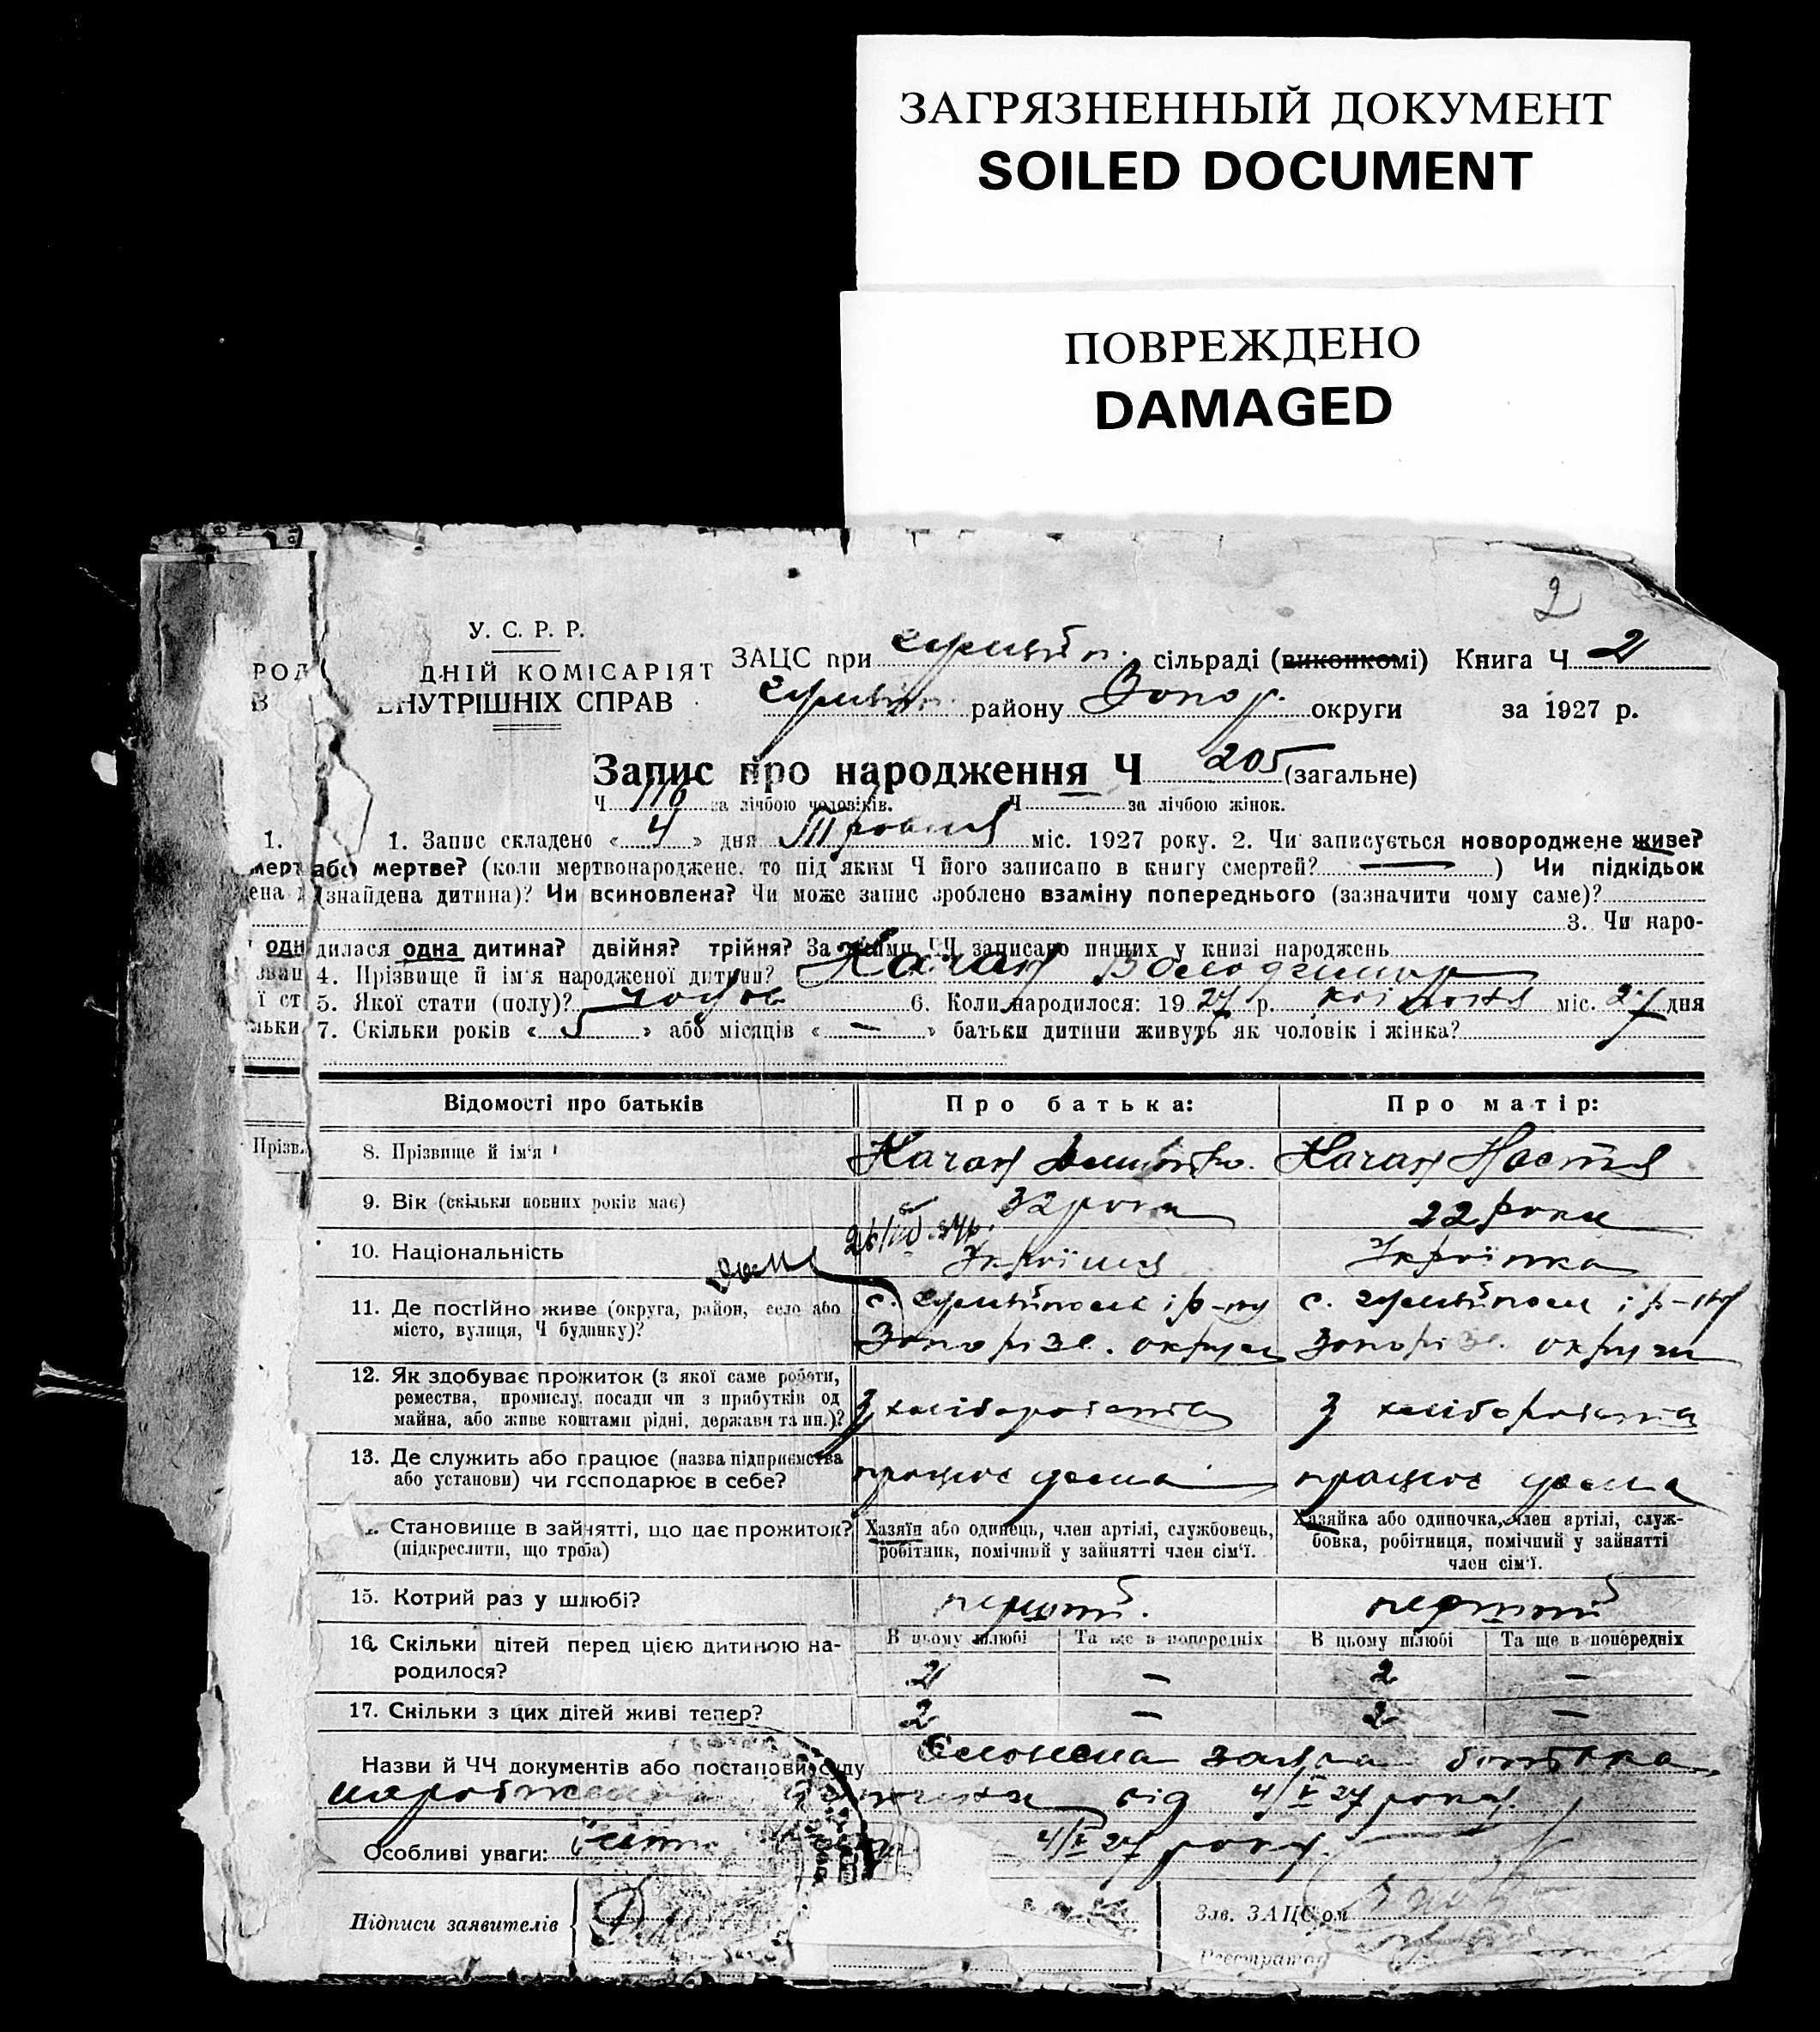 ЗАГРЯЗНЕННЫЙ ДОКУМЕНТ
SOILED DOCUMENT
ПОВРЕЖДЕНО
DAMAGED
2
У. С. Р. Р.
ДНІЙ КОМІСАРІЯТ
ВНУТРІШНІХ СПРАВ
ЗАЦС при сільраді (виконкомі) Книга Ч 2
району Запор. округи за 1927 р.
Запис про народження Ч 205 (загальне)
Ч 116 за лічбою чоловіків. Ч за лічбою жінок.
1. Запис складено « 4 » дня Травня міс. 1927 року. 2. Чи записується новороджене живе?
або мертве? (коли мертвонароджене, то під яким Ч його записано в книгу смертей? — ) Чи підкідьок
(знайдена дитина)? Чи всиновлена? Чи може запис зроблено взаміну попереднього (зазначити чому саме)?
3. Чи наро-
дилася одна дитина? двійня? трійня? За якими ЧЧ записано инших у книзі народжень
4. Прізвище й ім'я народженої дитини? Качан Володимир
5. Якої стати (полу)? чолов 6. Коли народилося: 1927 р. квітня міс. 27 дня
7. Скільки років « 5 » або місяців « — » батьки дитини живуть як чоловік і жінка?
Відомості про батьків Про батька: Про матір:
8. Прізвище й ім'я Качан Дмитро. Качан Настя
9. Вік (скільки повних років має) 32 роки 22 роки
10. Національність Українец Українка
11. Де постійно живе (округа, район, село або
місто, вулиця, Ч будинку)?
с. і р-ну с. і р-ну
Запорізь. округи Запорізь. округи
12. Як здобуває прожиток (з якої саме роботи,
ремества, промислу, посади чи з прибутків од
майна, або живе коштами рідні, держави та ин.)?
з хліборобства з хліборобства
13. Де служить або працює (назва підприємства
або установи) чи господарює в себе?
працює дома працює дома
Становище в зайнятті, що дає прожиток?
(підкреслити, що треба)
Хазяїн або одинець, член артілі, службовець,
робітник, помічний у зайнятті член сім'ї.
Хазяйка або одиночка, член артілі, служ-
бовка, робітниця, помічний у зайнятті
член сім'ї.
15. Котрий раз у шлюбі? перший. перший
16. Скільки дітей перед цією дитиною на-
родилося?
В цьому шлюбі Та ще в попередніх В цьому шлюбі Та ще в попередніх
2 — 2 —
17. Скільки з цих дітей живі тепер? 2 — 2 —
Назви й ЧЧ документів або постанови суду заява батька
від 4/V 27 року.
Особливі уваги: 4/V 27 року.
Підписи заявителів
Зав. ЗАЦС'ом
Реєстратор